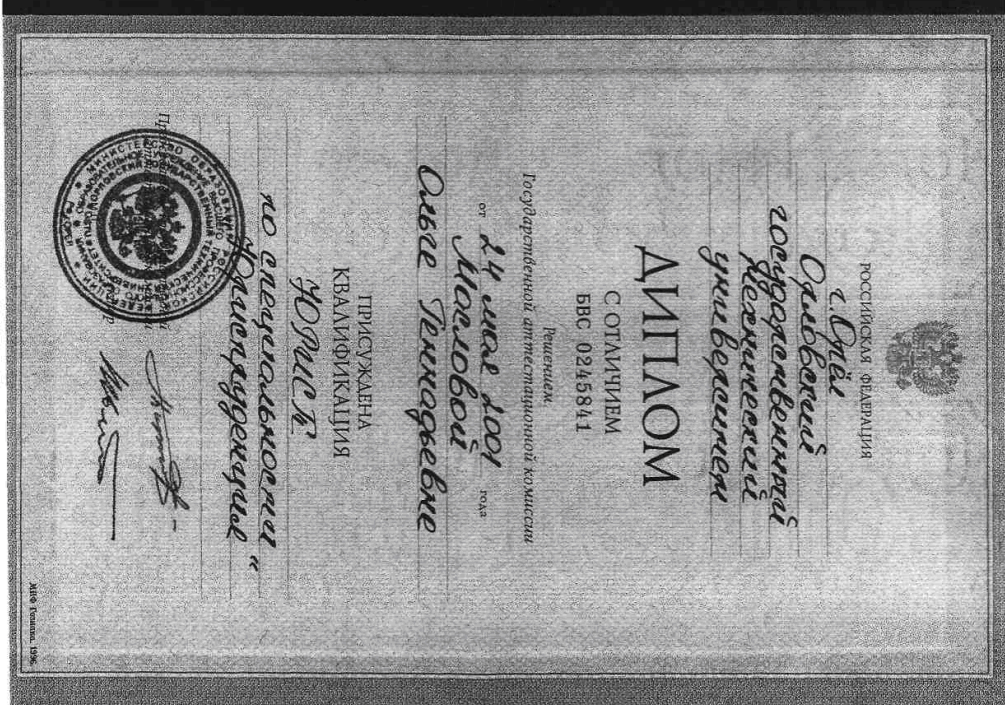 РОССИЙСКАЯ ФЕДЕРАЦИЯ
г. Орёл
Орловский
государственный
технический
университет
ДИПЛОМ
С ОТЛИЧИЕМ
БВС 0245841
Решением
Государственной аттестационной комиссии
от 24 мая 2001 года
Масловой
Ольге Геннадьевне
ПРИСУЖДЕНА
КВАЛИФИКАЦИЯ
ЮРИСТ
по специальности
„Юриспруденция“
МПФ Гознака. 1996.